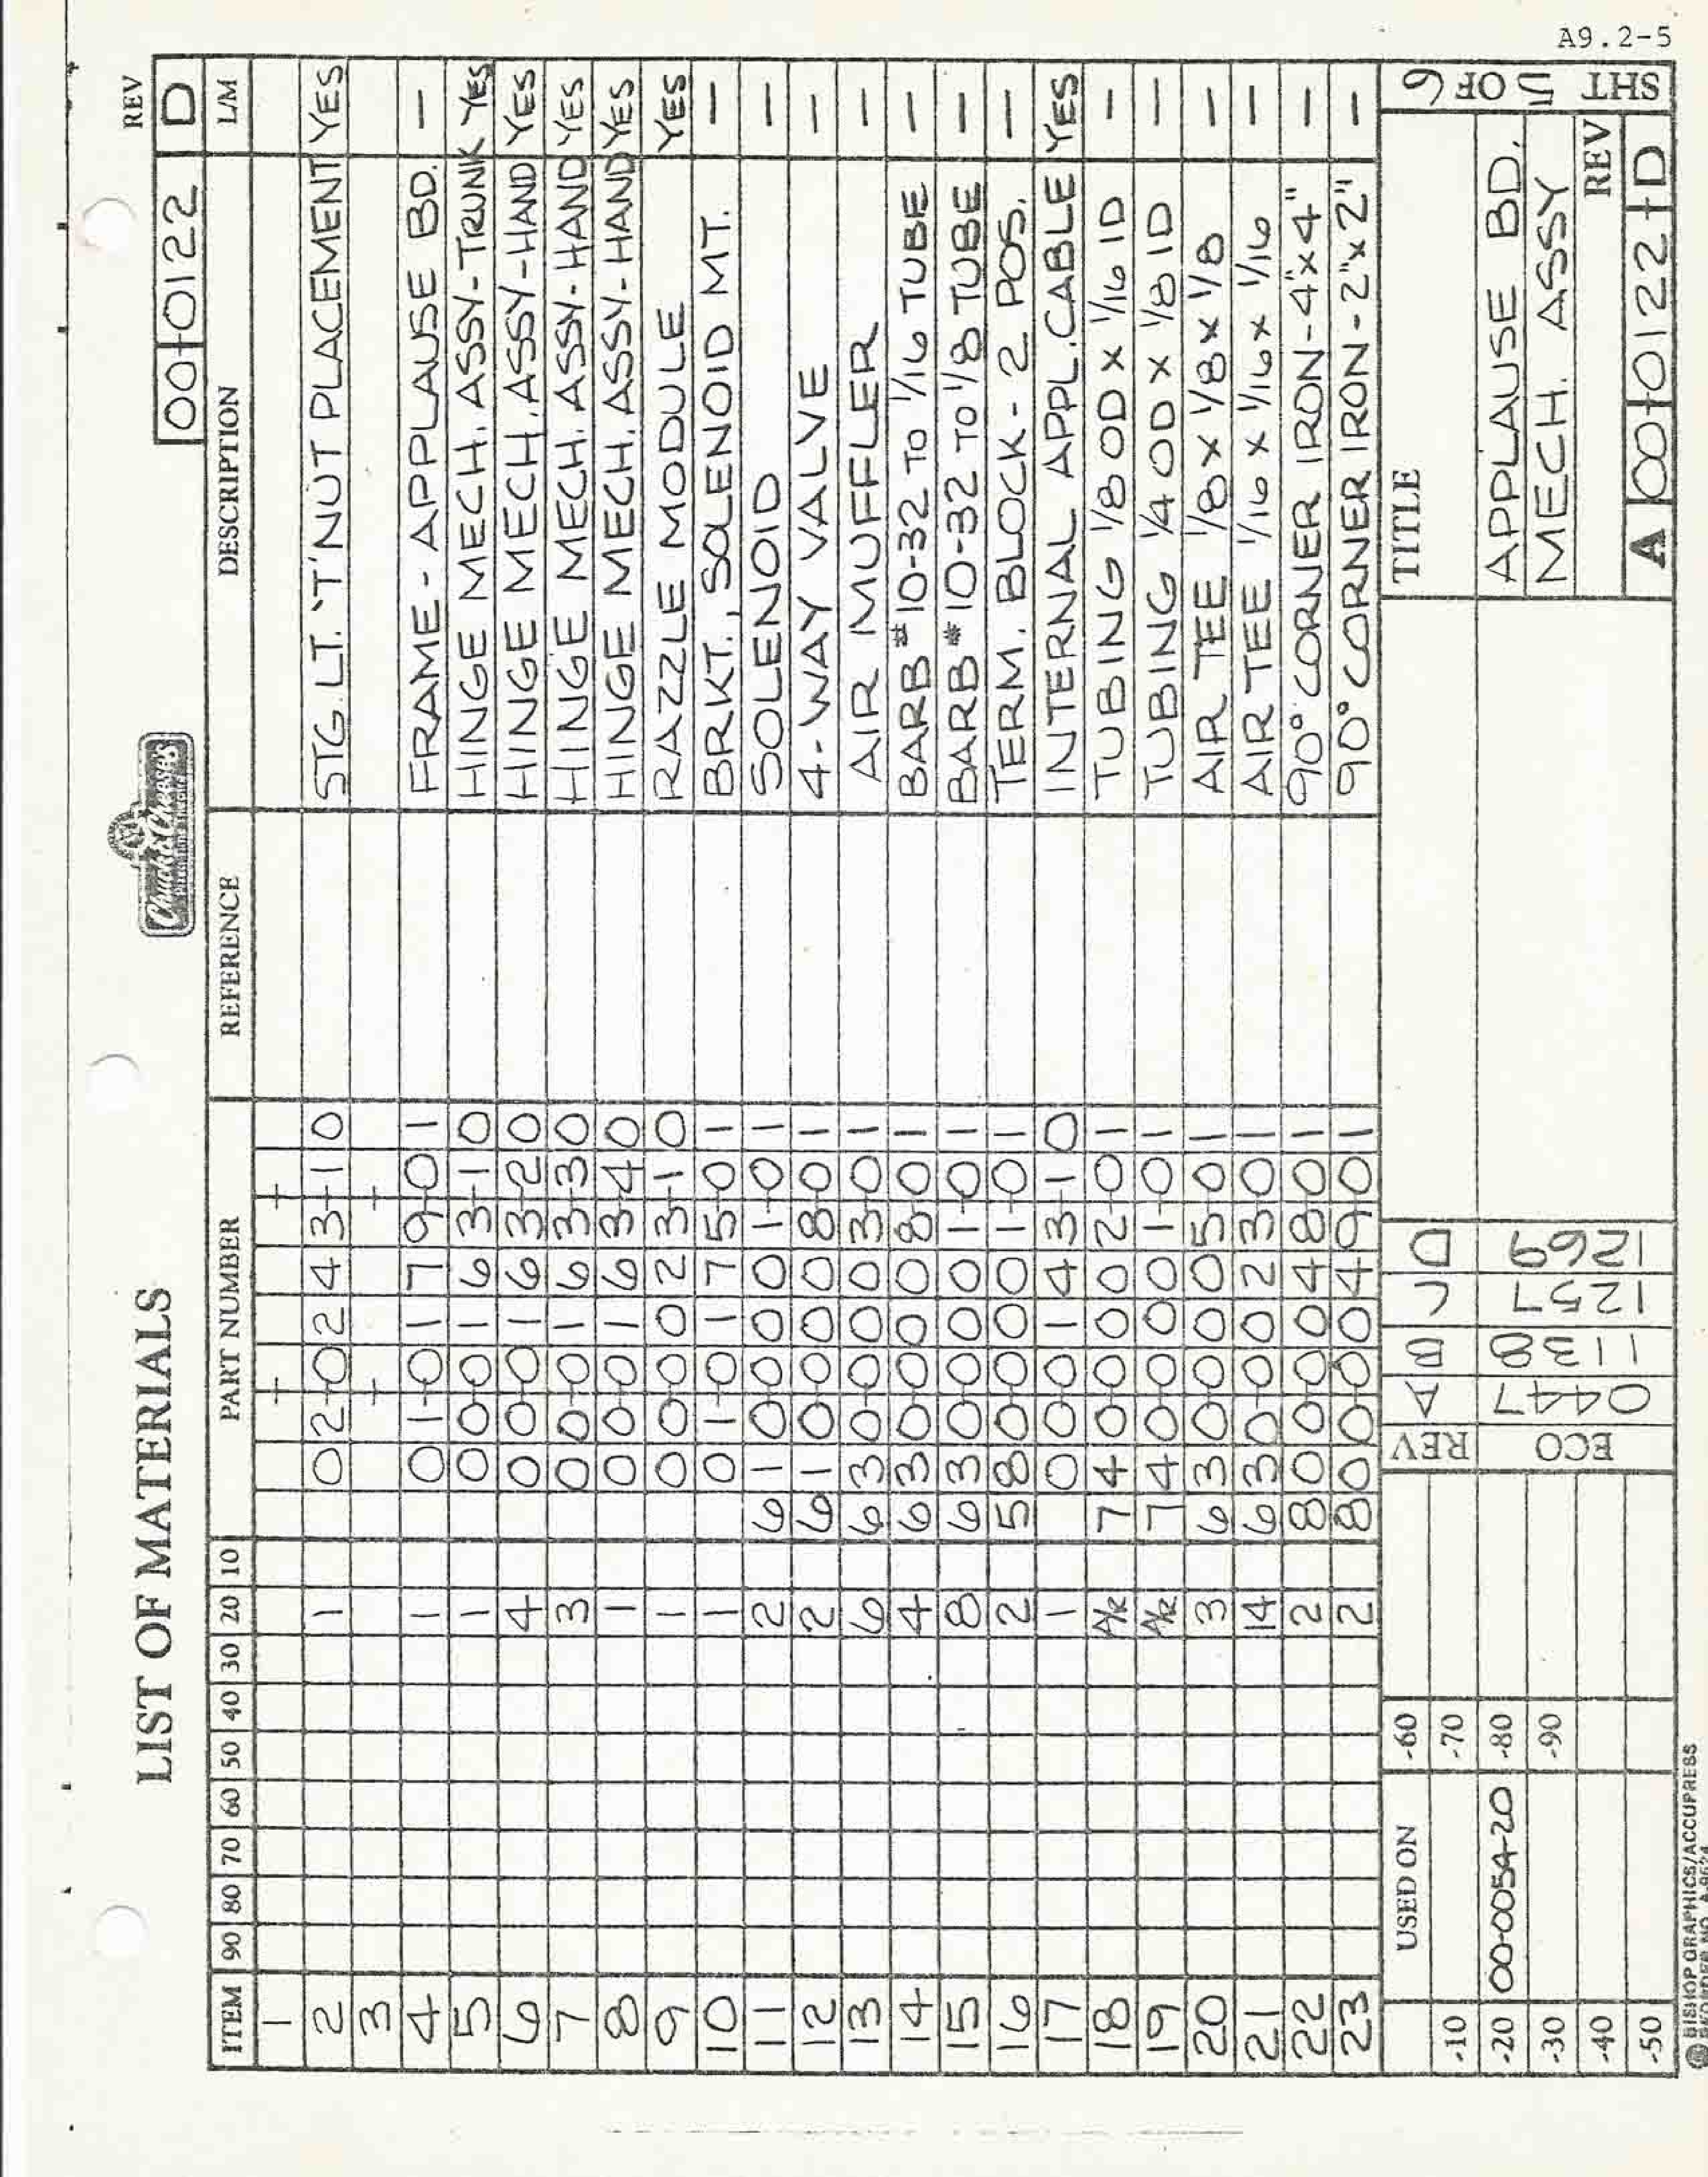 A9.2-5
LIST OF MATERIALS
Chuck E. Cheese's
REV
00-0122 D
ITEM 90 80 70 60 50 40 30 20 10 PART NUMBER REFERENCE DESCRIPTION L/M
1
2 1 02-0243-10 STG. LT. 'T' NUT PLACEMENT YES
3
4 1 01-0179-01 FRAME - APPLAUSE BD. -
5 1 00-0163-10 HINGE MECH. ASSY-TRUNK YES
6 4 00-0163-20 HINGE MECH. ASSY-HAND YES
7 3 00-0163-30 HINGE MECH. ASSY-HAND YES
8 1 00-0163-40 HINGE MECH. ASSY-HAND YES
9 1 00-0023-10 RAZZLE MODULE YES
10 1 01-0175-01 BRKT., SOLENOID MT. -
11 2 610-0001-01 SOLENOID -
12 2 610-0008-01 4-WAY VALVE -
13 6 630-0003-01 AIR MUFFLER -
14 4 630-0008-01 BARB #10-32 TO 1/16 TUBE -
15 8 630-0001-01 BARB #10-32 TO 1/8 TUBE -
16 2 580-0001-01 TERM. BLOCK - 2 POS. -
17 1 00-0143-10 INTERNAL APPL. CABLE YES
18 A/R 740-0002-01 TUBING 1/8 OD x 1/16 ID -
19 A/R 740-0001-01 TUBING 1/4 OD x 1/8 ID -
20 3 630-0005-01 AIR TEE 1/8 x 1/8 x 1/8 -
21 14 630-0023-01 AIR TEE 1/16 x 1/16 x 1/16 -
22 2 800-0048-01 90° CORNER IRON - 4" x 4" -
23 2 800-0049-01 90° CORNER IRON - 2" x 2" -
USED ON
-10
-20 00-0054-20
-30
-40
-50
-60
-70
-80
-90
REV A B C D
ECO 0447 1138 1257 1269
TITLE
APPLAUSE BD.
MECH. ASSY
REV
A 00-0122-D
SHT 5 OF 6
© BISHOP GRAPHICS/ACCUPRESS